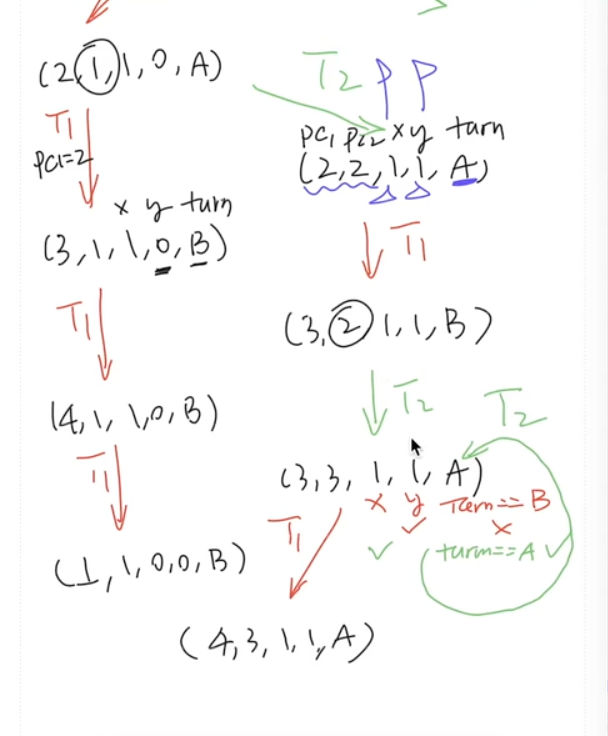 (2,1,1,0,A)
T1
PC1=2
x y turn
(3,1,1,0,B)
T1
(4,1,1,0,B)
T1
(1,1,0,0,B)
T2 P P
PC1 PC2 x y turn
(2,2,1,1,A)
T1
(3,2,1,1,B)
T2
T2
(3,3,1,1,A)
x y Turn==B
T1 ✓ x
✓ (turn==A ✓
(4,3,1,1,A)